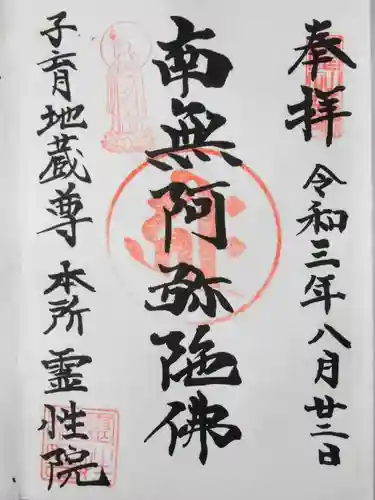 奉拝
令和三年八月廿二日
南無阿弥陀佛
子育地蔵尊
本所 霊性院